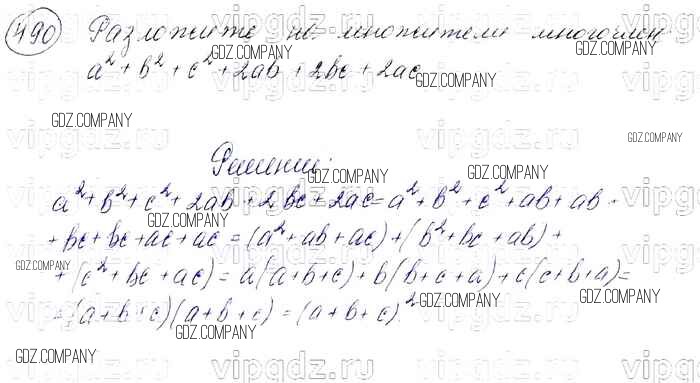 490 Разложите на множители многочлен
a² + b² + c² + 2ab + 2bc + 2ac
Решение:
a² + b² + c² + 2ab + 2bc + 2ac = a² + b² + c² + ab + ab +
+ bc + bc + ac + ac = (a² + ab + ac) + (b² + bc + ab) +
+ (c² + bc + ac) = a(a + b + c) + b(b + c + a) + c(c + b + a) =
= (a + b + c)(a + b + c) = (a + b + c)²
GDZ.COMPANY
vipgdz.ru